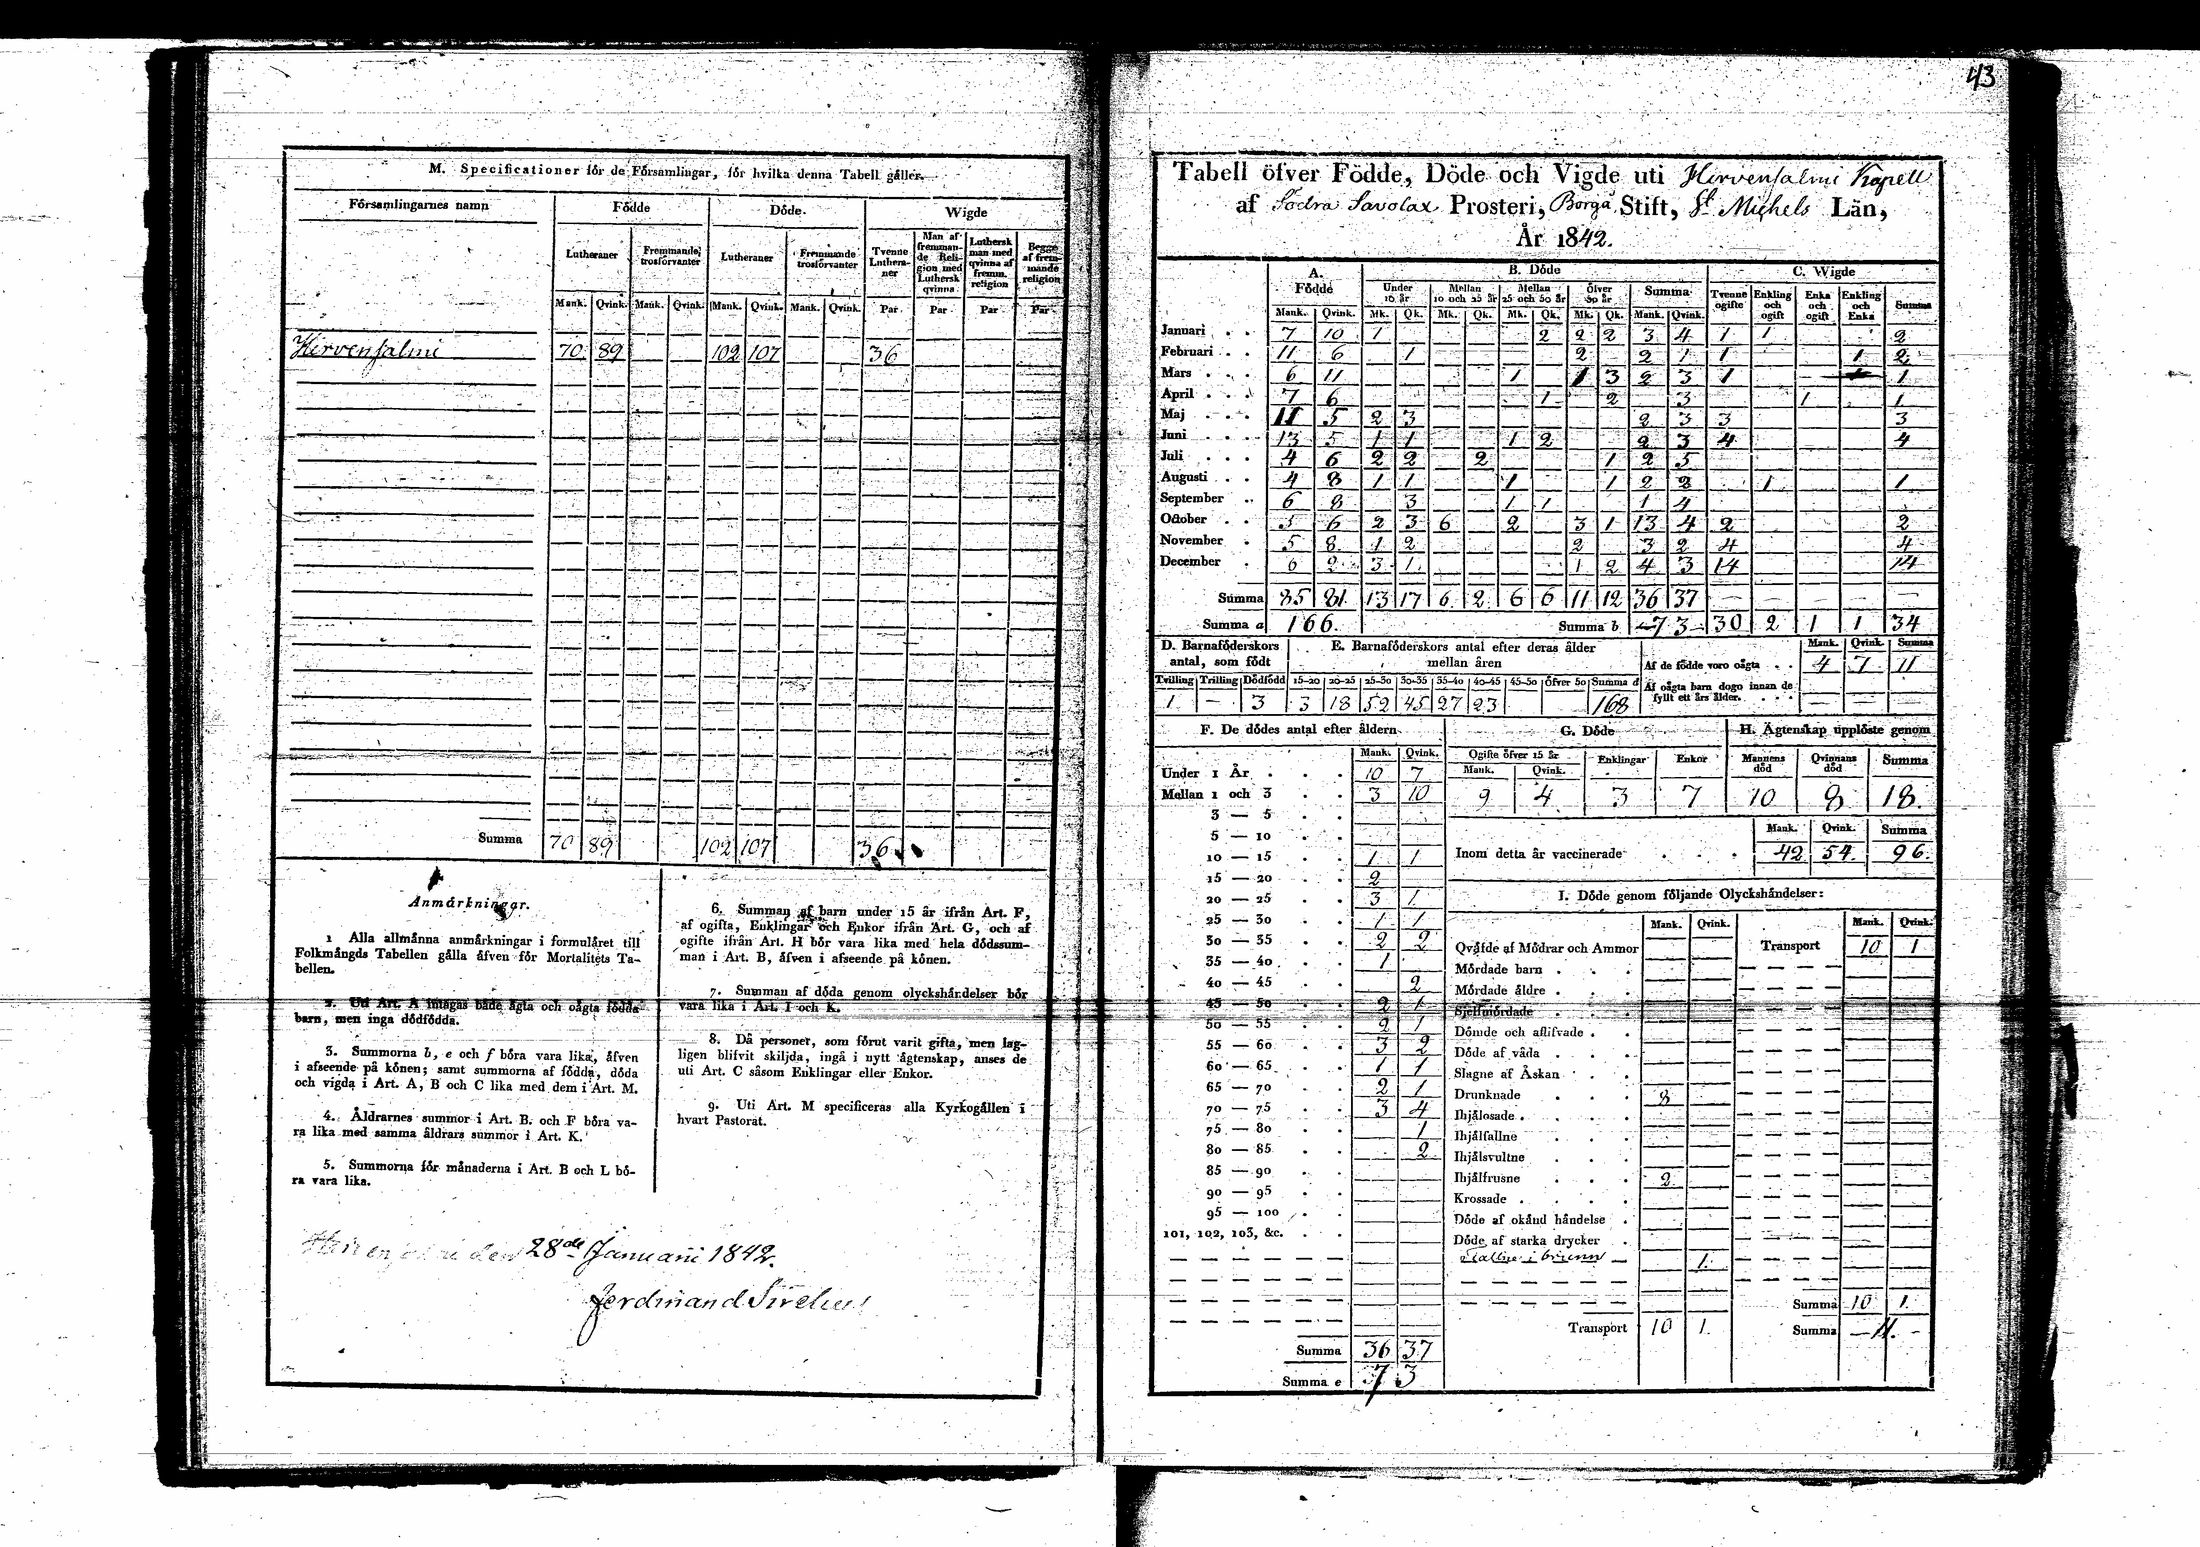 43
M. Specificationer för de Församlingar, för hvilka denna Tabell gäller.
Församlingarnes namn Födde Döde. Wigde
Lutheraner Fremmande trosförvanter Lutheraner Fremmande trosförvanter Tvenne Lutheraner Man af fremmande Religion med Luthersk qvinna Luthersk man med qvinna af fremm. religion Begge af fremmande religion
Mank. Qvink. Mank. Qvink. Mank. Qvink. Mank. Qvink. Par Par Par Par
Hirvensalmi 70 89 102 107 36
Summa 70 89 102 107 36
Anmärkningar.
1 Alla allmänna anmärkningar i formuläret till
Folkmängds Tabellen gälla äfven för Mortalitets Ta-
bellen.
2. Uti Art. A intagas både ägta och oägta födda
barn, men inga dödfödda.
3. Summorna b, e och f böra vara lika, äfven
i afseende på könen; samt summorna af födda, döda
och vigda i Art. A, B och C lika med dem i Art. M.
4. Åldrarnes summor i Art. B. och F böra va-
ra lika med samma åldrars summor i Art. K.
5. Summorna för månaderna i Art. B och L bö-
ra vara lika.
6. Summan af barn under 15 år ifrån Art. F,
af ogifta, Enklingar och Enkor ifrån Art. G, och af
ogifte ifrån Art. H bör vara lika med hela dödssum-
man i Art. B, äfven i afseende på könen.
7. Summan af döda genom olyckshändelser bör
vara lika i Art. I och K.
8. Då personer, som förut varit gifta, men lag-
ligen blifvit skiljda, ingå i nytt ägtenskap, anses de
uti Art. C såsom Enklingar eller Enkor.
9. Uti Art. M specificeras alla Kyrkogällen i
hvart Pastorat.
den 28de Januarii 1842.
Ferdinand Sirelius
Tabell öfver Födde, Döde och Vigde uti Hirvensalmi Kapell
af Södra Savolax Prosteri, Borgå Stift, St Michels Län,
År 1842.
A. Födde B. Döde C. Wigde
Under 10 år Mellan 10 och 25 år Mellan 25 och 50 år Öfver 50 år Summa Tvenne ogifte Enkling och ogift Enka och ogift Enkling och Enka Summa
Mank. Qvink. Mk. Qk. Mk. Qk. Mk. Qk. Mk. Qk. Mank. Qvink.
Januari 7 10 1 2 2 2 3 4 1 1 2
Februari 11 6 1 2 2 1 1 1 2
Mars 6 11 1 1 3 2 3 1 1
April 7 6 1 2 3 1 1
Maj 11 5 2 3 2 3 3 3
Juni 13 5 1 1 1 2 2 3 4 4
Juli 4 6 2 2 2 1 2 5
Augusti 4 8 1 1 1 1 2 2 1 1
September 6 8 3 1 1 1 4
October 5 6 2 3 6 2 3 1 13 4 2 2
November 5 8 1 2 2 3 2 4 4
December 6 2 3 1 1 2 4 3 14 14
Summa 85 81 13 17 6 2 6 6 11 12 36 37
Summa a 166. Summa b 73 30 2 1 1 34
D. Barnaföderskors antal, som födt
E. Barnaföderskors antal efter deras ålder mellan åren
Tvilling Trilling Dödfödd 15–20 20–25 25–30 30–35 35–40 40–45 45–50 Öfver 50 Summa d
1 — 3 3 18 52 45 27 23 168
Mank. Qvink. Summa
Af de födde voro oägta 4 7 11
Af oägta barn dogo innan de fyllt ett års ålder. — — —
F. De dödes antal efter åldern
Mank. Qvink.
Under 1 År 10 7
Mellan 1 och 3 3 10
3 — 5
5 — 10
10 — 15 1 1
15 — 20 2
20 — 25 3 1
25 — 30 1 1
30 — 35 2 2
35 — 40 1
40 — 45 2
45 — 50 2 1
50 — 55 2 1
55 — 60 3 2
60 — 65 1 1
65 — 70 2 1
70 — 75 3 4
75 — 80 1
80 — 85 2
85 — 90
90 — 95
95 — 100
101, 102, 103, &c.
Summa 36 37
Summa e 73
G. Döde
Ogifte öfver 15 år Enklingar Enkor
Mank. Qvink.
9 4 3 7
H. Ägtenskap upplöste genom
Mannens död Qvinnans död Summa
10 8 18.
Mank. Qvink. Summa
Inom detta år vaccinerade 42 54 96.
I. Döde genom följande Olyckshändelser:
Mank. Qvink. Mank. Qvink.
Qväfde af Mödrar och Ammor Transport 10 1
Mördade barn
Mördade äldre
Sjelfmördade
Dömde och aflifvade
Döde af våda
Slagne af Åskan
Drunknade 8
Ihjälosade
Ihjälfallne
Ihjälsvultne
Ihjälfrusne 2
Krossade
Döde af okänd händelse
Döde af starka drycker
Fallne i brunn 1
Summa 10 1
Transport 10 1 Summa 11.